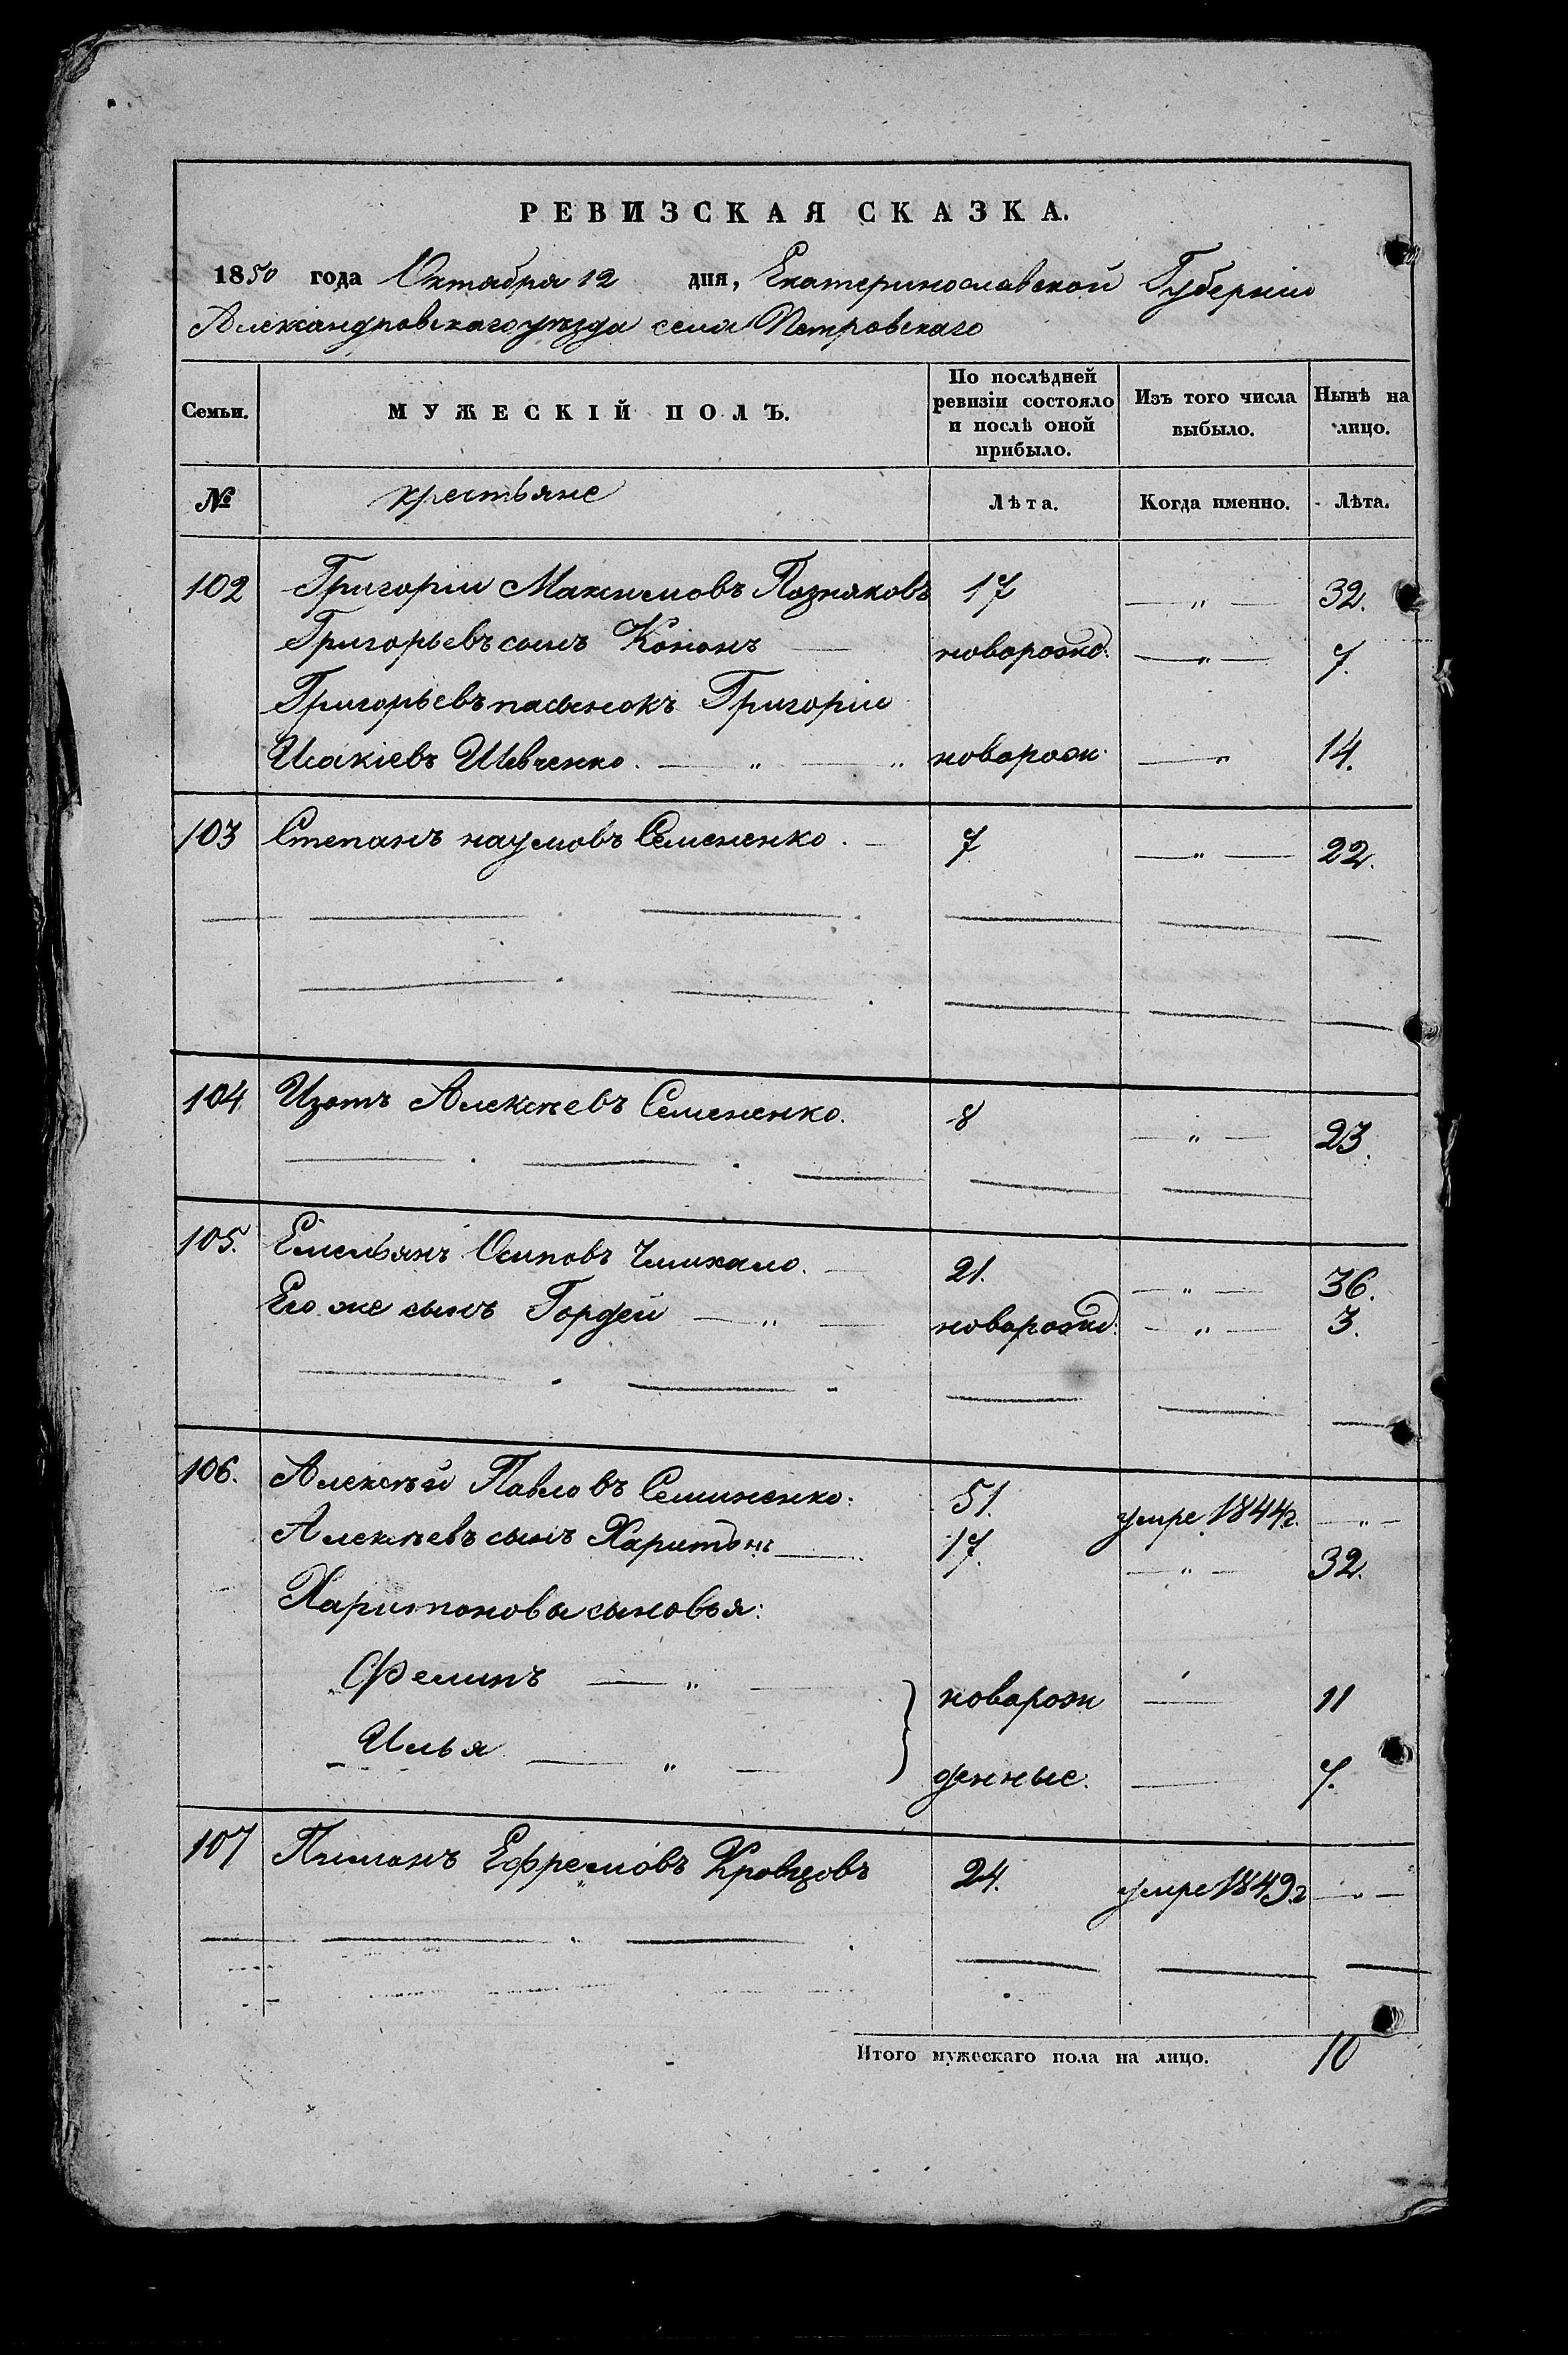 РЕВИЗСКАЯ СКАЗКА.
1850 года Октября 12 дня, Екатеринославской Губерніи
Александровскаго уѣзда села Петровскаго
Семьи. МУЖЕСКІЙ ПОЛЪ. По послѣдней ревизіи состояло и послѣ оной прибыло. Изъ того числа выбыло. Нынѣ на лицо.
№ крестьяне Лѣта. Когда именно. Лѣта.
102 Григоріи Максимовъ Позняковъ 17 — „ — 32.
Григорьевъ сынъ Кононъ — новорожд: — „ — 7.
Григорьевъ пасынокъ Григоріи
Исакіевъ Шевченко. — „ — „ новорож: — „ 14.
103 Степанъ наумовъ Семененко. — 7 — „ — 22.
104 Изотъ Алексѣевъ Семененко. 8 — „ — 23.
105. Емельянъ Осиповъ Чмихало. — 21. — „ — 36.
Его же сынъ Гордей — „ — новорожд: — „ — 3.
106. Алексѣй Павловъ Семиненко: 51. умре 1844г. — „ —
Алексѣевъ сынъ Харитонъ — 17. — „ — 32.
Харитоновы сыновья:
Филипъ — „ — } новорож — 11
Илья — „ — денные. — 7.
107 Пиманъ Ефремовъ Кровцовъ 24. умре 1849г — „ —
Итого мужескаго пола на лицо. 10